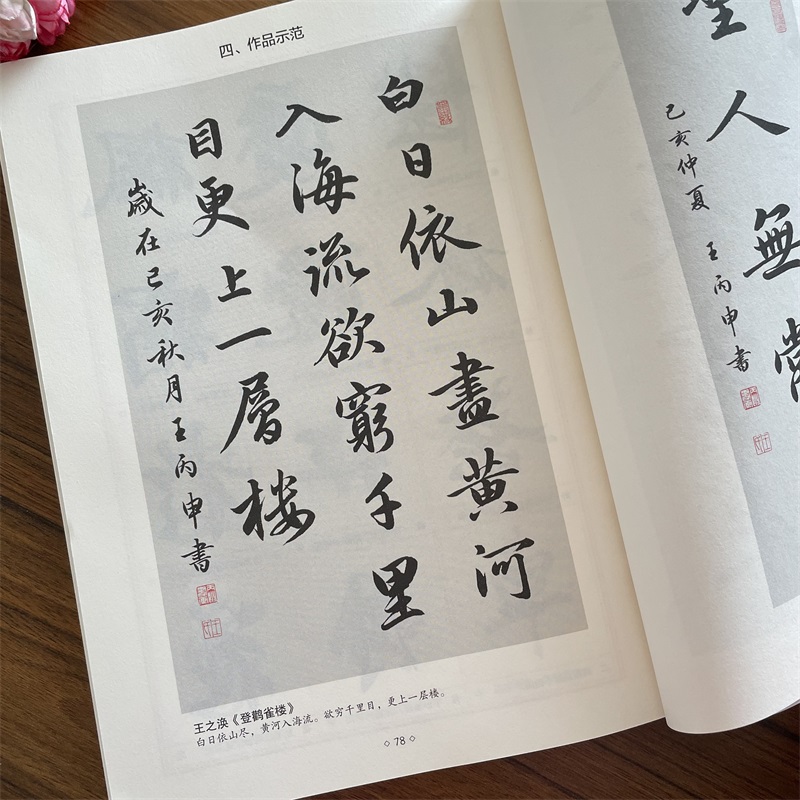 四、作品示范
白日依山盡黄河
入海流欲窮千里
目更上一層楼
歲在己亥秋月王丙申書
王之涣《登鹳雀楼》
白日依山尽，黄河入海流。欲穷千里目，更上一层楼。
◇78◇
人無
己亥仲夏 王丙申書